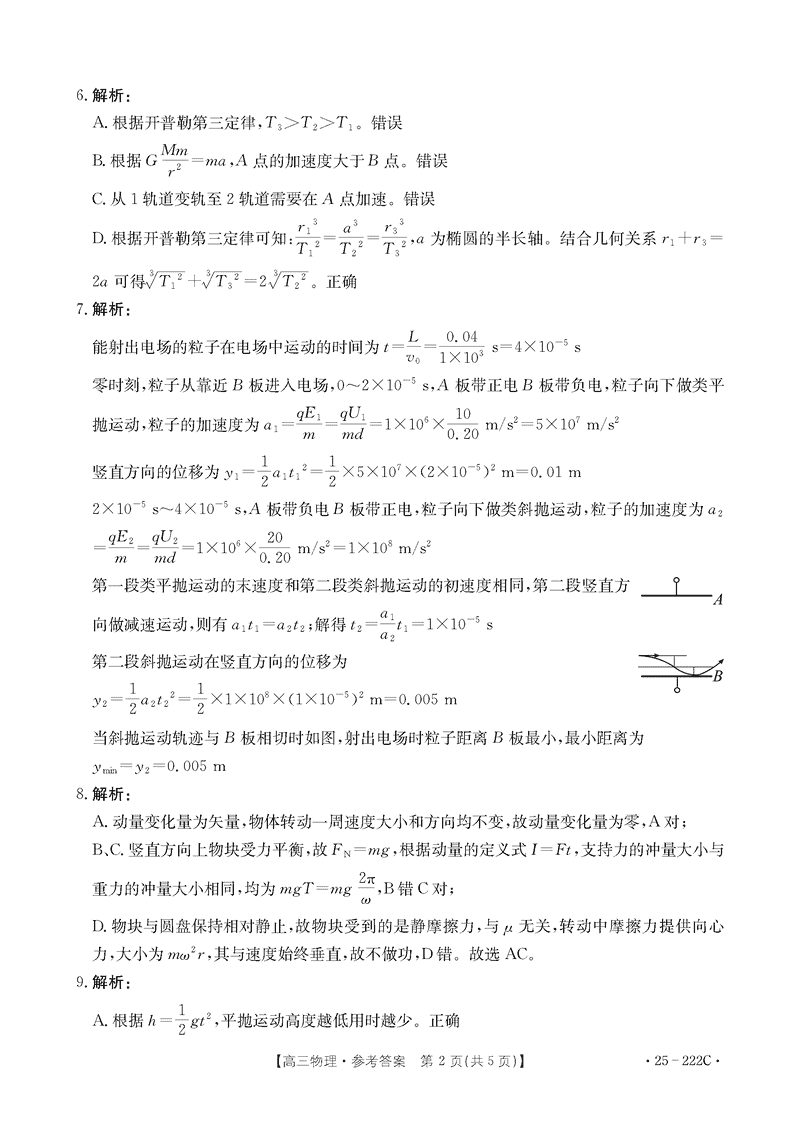 6. 解析:
A. 根据开普勒第三定律,T₃>T₂>T₁。错误
B. 根据 G Mm/r² =ma,A 点的加速度大于 B 点。错误
C. 从 1 轨道变轨至 2 轨道需要在 A 点加速。错误
D. 根据开普勒第三定律可知: r₁³/T₁² = a³/T₂² = r₃³/T₃² ,a 为椭圆的半长轴。结合几何关系 r₁+r₃=
2a 可得∛(T₁²)+∛(T₃²)=2∛(T₂²)。正确
7. 解析:
能射出电场的粒子在电场中运动的时间为 t= L/v₀ = 0.04/(1×10³) s=4×10⁻⁵ s
零时刻,粒子从靠近 B 板进入电场,0~2×10⁻⁵ s,A 板带正电 B 板带负电,粒子向下做类平
抛运动,粒子的加速度为 a₁= qE₁/m = qU₁/md =1×10⁶× 10/0.20 m/s²=5×10⁷ m/s²
竖直方向的位移为 y₁= 1/2 a₁t₁²= 1/2 ×5×10⁷×(2×10⁻⁵)² m=0.01 m
2×10⁻⁵ s~4×10⁻⁵ s,A 板带负电 B 板带正电,粒子向下做类斜抛运动,粒子的加速度为 a₂
= qE₂/m = qU₂/md =1×10⁶× 20/0.20 m/s²=1×10⁸ m/s²
第一段类平抛运动的末速度和第二段类斜抛运动的初速度相同,第二段竖直方
A
向做减速运动,则有 a₁t₁=a₂t₂;解得 t₂= a₁/a₂ t₁=1×10⁻⁵ s
第二段斜抛运动在竖直方向的位移为
B
y₂= 1/2 a₂t₂²= 1/2 ×1×10⁸×(1×10⁻⁵)² m=0.005 m
当斜抛运动轨迹与 B 板相切时如图,射出电场时粒子距离 B 板最小,最小距离为
yₘᵢₙ=y₂=0.005 m
8. 解析:
A. 动量变化量为矢量,物体转动一周速度大小和方向均不变,故动量变化量为零,A 对;
B、C. 竖直方向上物块受力平衡,故 F_N=mg,根据动量的定义式 I=Ft,支持力的冲量大小与
重力的冲量大小相同,均为 mgT=mg 2π/ω ,B 错 C 对;
D. 物块与圆盘保持相对静止,故物块受到的是静摩擦力,与 μ 无关,转动中摩擦力提供向心
力,大小为 mω²r,其与速度始终垂直,故不做功,D 错。故选 AC。
9. 解析:
A. 根据 h= 1/2 gt²,平抛运动高度越低用时越少。正确
【高三物理·参考答案 第 2 页(共 5 页)】
·25-222C·